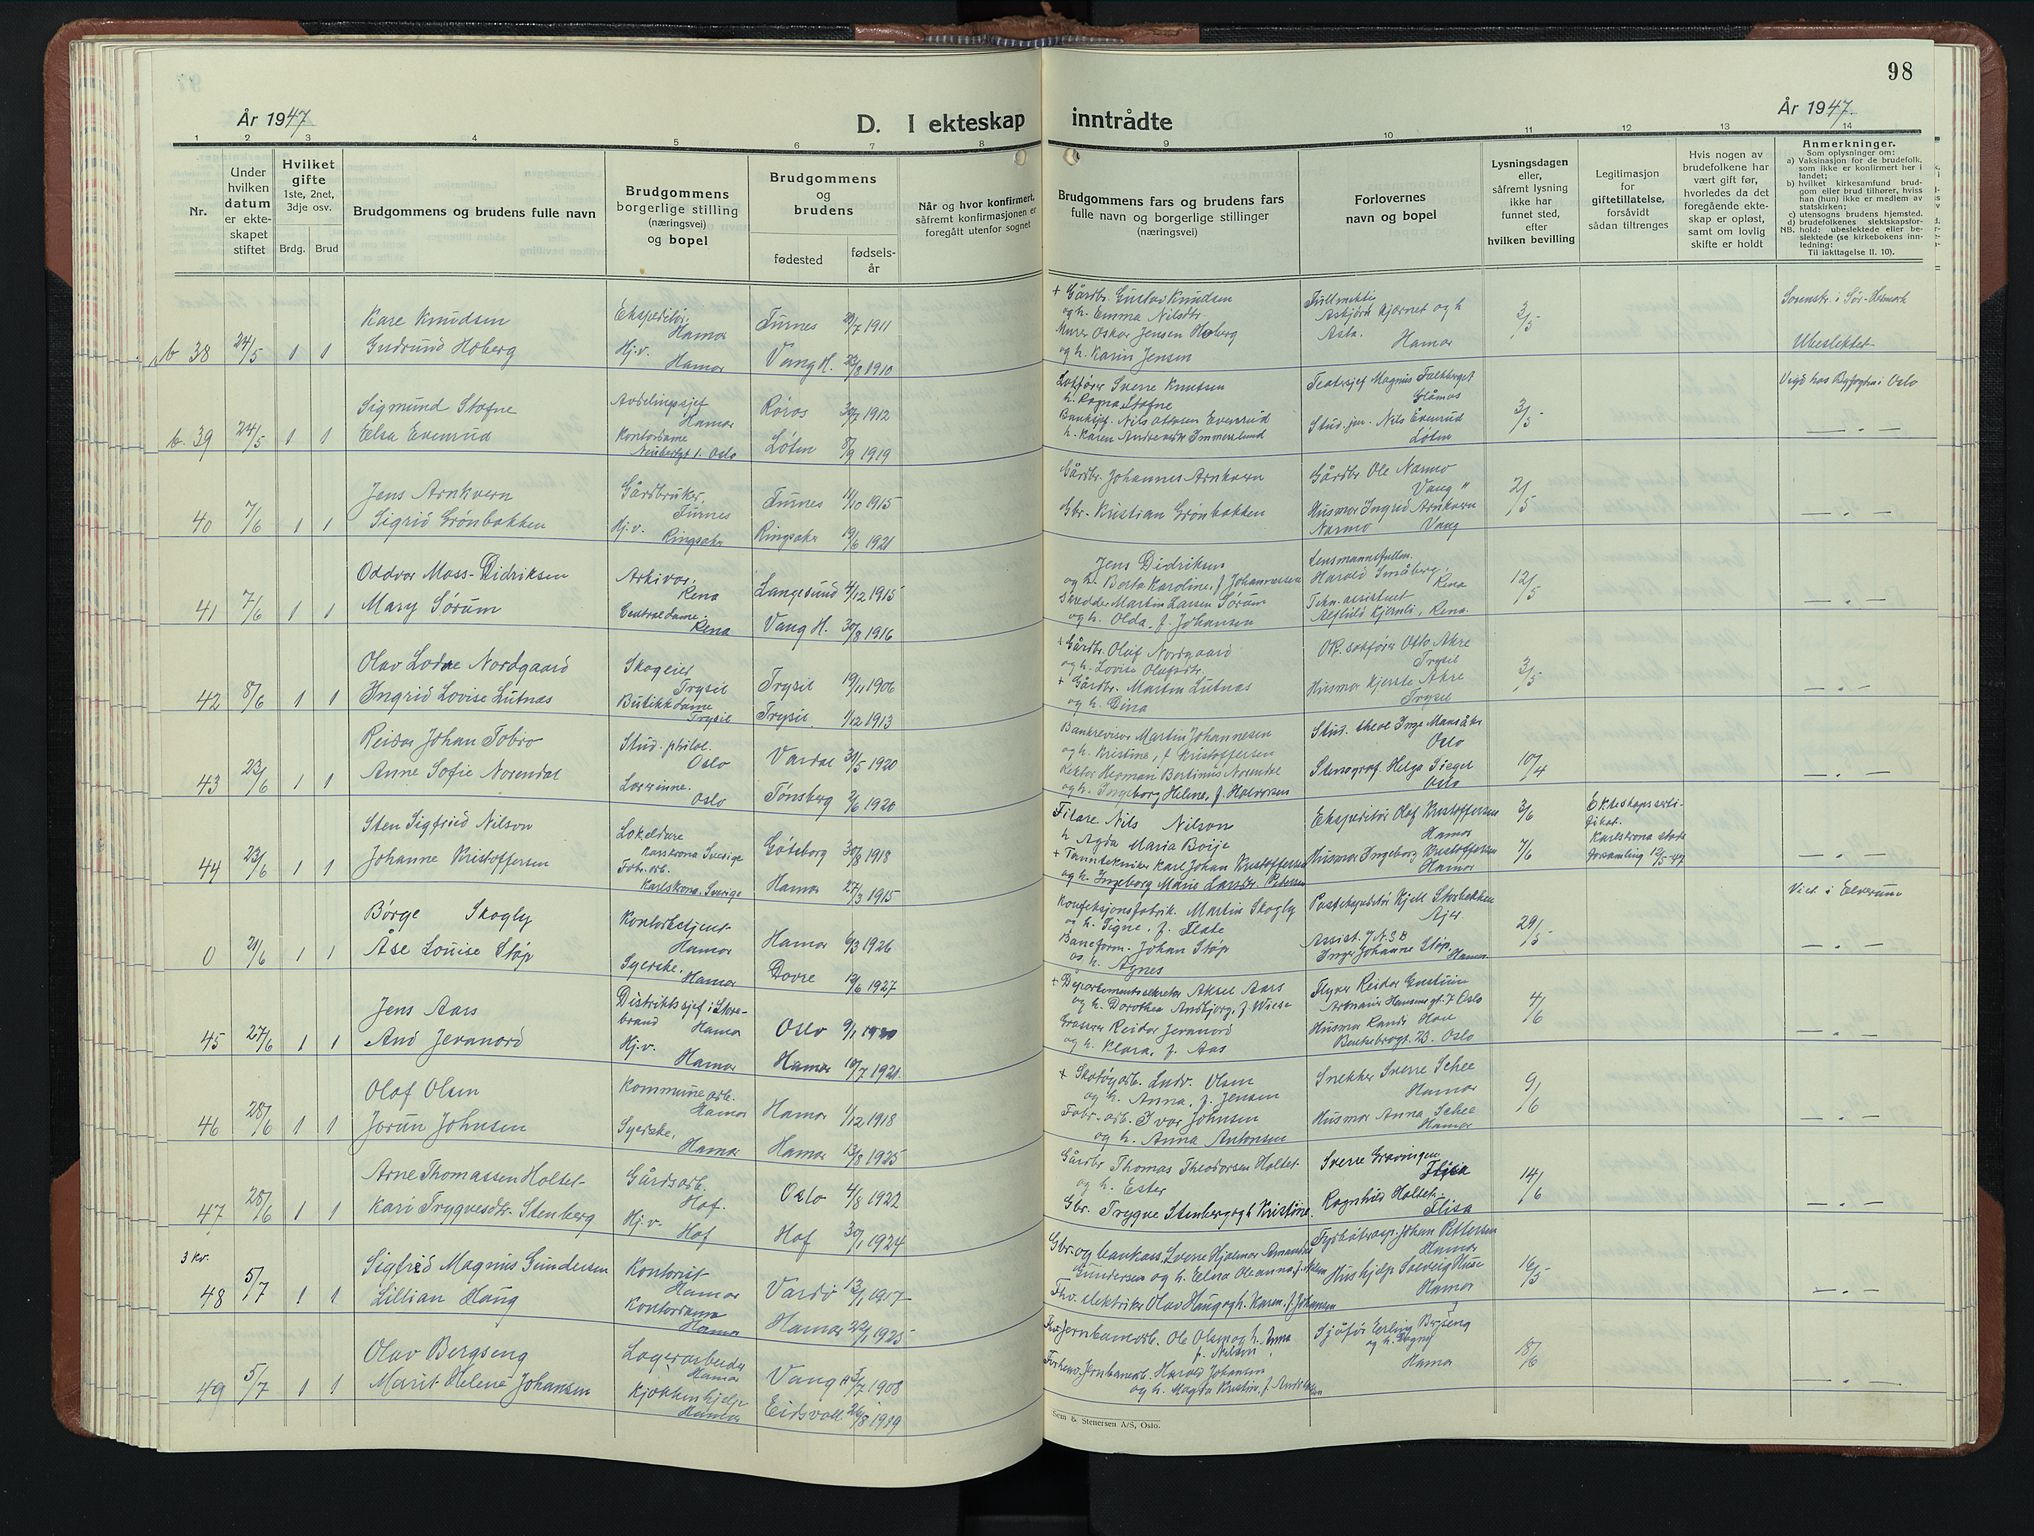 98
År 1947
D. I ekteskap inntrådte
År 1947.
1 2 3 4 5 6 7 8 9 10 11 12 13 14
Nr.
Under hvilken datum er ekteskapet stiftet
Hvilket gifte
1ste, 2net, 3dje osv.
Brdg. Brud
Brudgommens og brudens fulle navn
Brudgommens borgerlige stilling (næringsvei) og bopel
Brudgommens og brudens
fødested
fødselsår
Når og hvor konfirmert, såfremt konfirmasjonen er foregått utenfor sognet
Brudgommens fars og brudens fars fulle navn og borgerlige stillinger (næringsvei)
Forlovernes navn og bopel
Lysningsdagen eller, såfremt lysning ikke har funnet sted, efter hvilken bevilling
Legitimasjon for giftetillatelse, forsåvidt sådan tiltrenges
Hvis nogen av brudefolkene har vært gift før, hvorledes da det foregående ekteskap er opløst, samt om lovlig skifte er holdt
Anmerkninger.
Som oplysninger om:
a) Vaksinasjon for de brudefolk, som ikke er konfirmert her i landet;
b) hvilket kirkesamfund brudgom eller brud tilhører, hvis han (hun) ikke er medlem av statskirken;
c) utensogns brudens hjemsted.
d) brudefolkenes slektskapsforhold: ubeslektede eller beslektede (se kirkebokens innledning:
Til iakttagelse II. 10).
b 38 24/5 1 1
Kåre Knudsen
Gudrund Hoberg
Ekspeditør. Hamar
Hj.v. Hamar
Furnes 1911
Vang H. 1910
+ Gårdbr. Gustav Knudsen
og h. Emma Nilsdtr.
Murer Oskar Jensen Hoberg
og h. Karin Jensen
Fullmektig
Asbjørn Kjernet og h
Asta. Hamar
3/5
Sorenskr. i Sør-Hedmark
Ubeslektet
b. 39 24/5 1 1
Sigmund Stofne
Elsa Evenrud
Avdelingssjef Hamar
Kontordame
Oslo
Røros 30/7 1912
Løten 8/9 1919
Lokfører Sverre Knutsen
h. Ragna Stofne
Banksjef. Nils Ottesen Evenrud
Teatersjef Magnus Falkberget
Glåmos
Stud. jur. Nils Evenrud
Løten
3/5
Vigd hos Byfogden i Oslo
— „ —
40 7/6 1 1
Jens Arnkvern
Sigrid Grønbakken
Gårdbruker. Furnes
Hj.v. Ringsaker
Furnes 11/10 1915
Ringsaker 19/6 1921
Gårdbr. Johannes Arnkvern
Gbr. Kristian Grønbakken
Gårdbr Ole Narmo
Vang "
Husmor Ingrid Arnkvern
Narmo Vang
2/5
— „ —
41 7/6 1 1
Oddvar Moss-Didriksen
Mary Sørum
Arkivar. Rena
Centraldame. Rena
Langesund 4/12 1915
Vang H. 30/8 1916
Jens Didriksen
og h. Berta Karoline, f. Johannessen
Skredder Martin Larsen Sørum
og h. Olda, f. Johansen
Lensmannsfullm.
Harald Småberg, Rena
Tekn. assistent
Rena.
12/5
— „ —
42 8/6 1 1
Olav Lodve Nordgaard
Ingrid Lovise Lutnæs
Skogeier Trysil
Butikkdame Trysil
Trysil 19/11 1906
Trysil. 1/12 1913
+ Gårdbr. Olaf Nordgaard
og h. Lovise Olafsdtr.
+ Gårdbr. Martin Lutnæs
og h. Dina
Otto Akre
Trysil
Husmor Kjerste Akre
Trysil
3/5
— „ —
43 23/6 1 1
Reidar Johan Tobro
Anne Sofie Norendal
Stud. philol. Oslo
Lærerinne. Oslo
Vardal 31/5 1920
Tønsberg 1920
Bankrevisor Martin Johannesen
og h. Kristine, f. Kristoffersen
Rektor Herman Bertinius Norendal
og h. Ingeborg Helene, f. Halvorsen
Stud. theol Inge
Oslo
Stenograf. Helga Siegel
Oslo
10/4
— „ —
44 23/6 1 1
Sten Sigfried Nilson
Johanne Kristoffersen
Karlskrona Sverige
Fabr. arb.
Karlskrona. Sverige
Gøteborg 30/8 1918
Hamar 27/3 1915
Filare Nils Nilson
h. Agda Maria Borje
+ Tanntekniker Karl Johan Kristoffersen
og h. Ingeborg Marie
Ekspeditør Olaf Kristoffersen
Hamar
Husmor Ingeborg Kristoffersen
Hamar
3/6
7/6
Ekteskapscertifikat.
Karlskrona stads
forsamling
— „ —
0 21/6 1 1
Børge Skogly
Åse Louise Støp
Kontorbetjent Hamar
Syerske. Hamar
Hamar 6/3 1926
Dovre 1927
Konfeksjonsfabrik. Martin Skogly
og h. Signe, f. Flate
Baneform. Johan Støp
og h. Agnes
Postekspeditør Kjell Storbekken
Ajer
Assist. NSB
Inger Johanne Støp, Hamar
29/5
Viet i Elverum
— „ —
45 27/6 1 1
Jens Aars
Aud Jevanord
Distriktssjef i Storebrand Hamar
Hj.v. Hamar
Oslo
Hamar 1921.
+ Departementssekretær Aksel Aars
og h. Dorothea Andbjørg, f. Wiese
Reidar Jevanord
og h. Klara, f. Aas
Flyver Reidar
Oslo
Husmor Randi
23. Oslo
4/6
— „ —
46 28/6 1 1
Olaf Olsen
Jorun Johnsen
Kommunearb. Hamar
Syerske, Hamar
Hamar 1/12 1918
Hamar 13/8 1925
+ Skotøyarb. Ludv. Olsen
og h. Anna, f. Jensen
Fabr. arb. Ivar Johnsen
og h. Anna Antonsen
Snekker Sverre Schee
Hamar
Husmor Anna Schee
Hamar
9/6
— „ —
47 28/6 1 1
Arne Thomassen Holtet
Kari Trygvesdtr. Stenberg
Gårdsarb. Hof.
Hj.v. Hof
Oslo 4/8 1922
Hof 30/1 1924
Gårdbr Thomas Theodorsen Holtet
og h. Ester
Gbr. Trygve Stenberg og h Kristine.
Sverre Gravingen
Flisa
Ragnhild Holtet
Flisa
14/6
— „ —
3 kr.
48 5/7 1 1
Sigfred Magnus Gundersen
Lillian Haug
Kontorist Hamar
Kontordame Hamar
Vardø 13/1 1917
Hamar 22/1 1925
Gbr. og bankkass. Sverre Hjalmar Amandus
Gundersen og h. Elna Oleanna f.
Fhv. elektriker Olav Haug og h. Karen, f. Johansen
Johan Pettersen
Hamar
Hushjelp Solveig Huse
Hamar
16/5
— „ —
49 5/7 1 1
Olav Bergseng
Marit Helene Johansen
Lagerarbeider Hamar
Kjøkkenhjelp Hamar
Vang H 1908
Eidsvoll. 26/8 1919
Jernbanearb. Ole Olsen og h. Anna
f. Nilsen
Jernbanearb. Harald Johansen
og h. Magda Kristine, f.
Sjåfør Erling Bergseng
og h. Dagny
Hamar
18/6
— „ —
Sem & Stenersen A/S, Oslo.